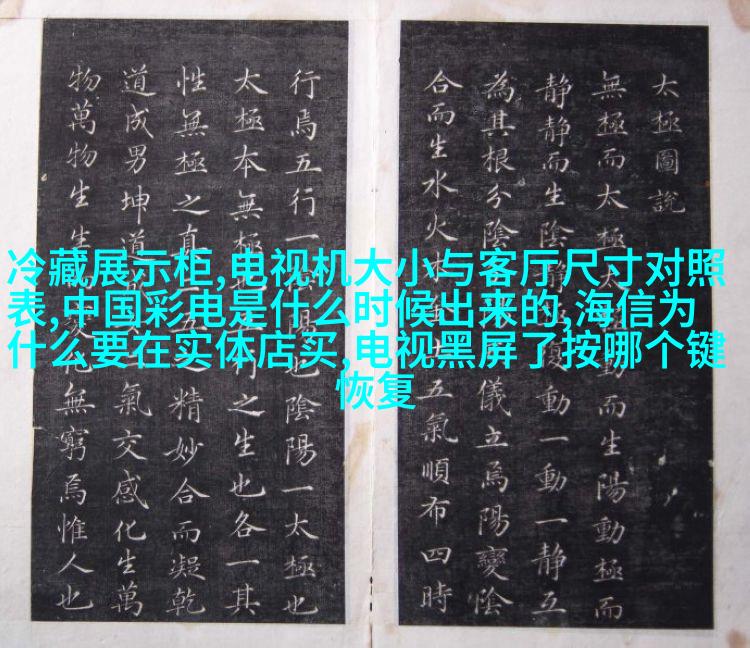 冷藏展示柜,电视机大小与客厅尺寸对照
表,中国彩电是什么时候出来的,海信为
什么要在实体店买,电视黑屏了按哪个键
恢复
太極圖說
無極而太極動而生陽動極而
静静而生陰静復動一動一静互
為其根分陰儀立焉陽變陰
合而生水火五氣順布四時
行焉五行一陰陽也陰陽一太極也
太極本無極也行之生也各一其
性無極之真五精妙合而凝乾
道成男坤道氣交感化生萬
物萬物生生變無窮焉惟人也